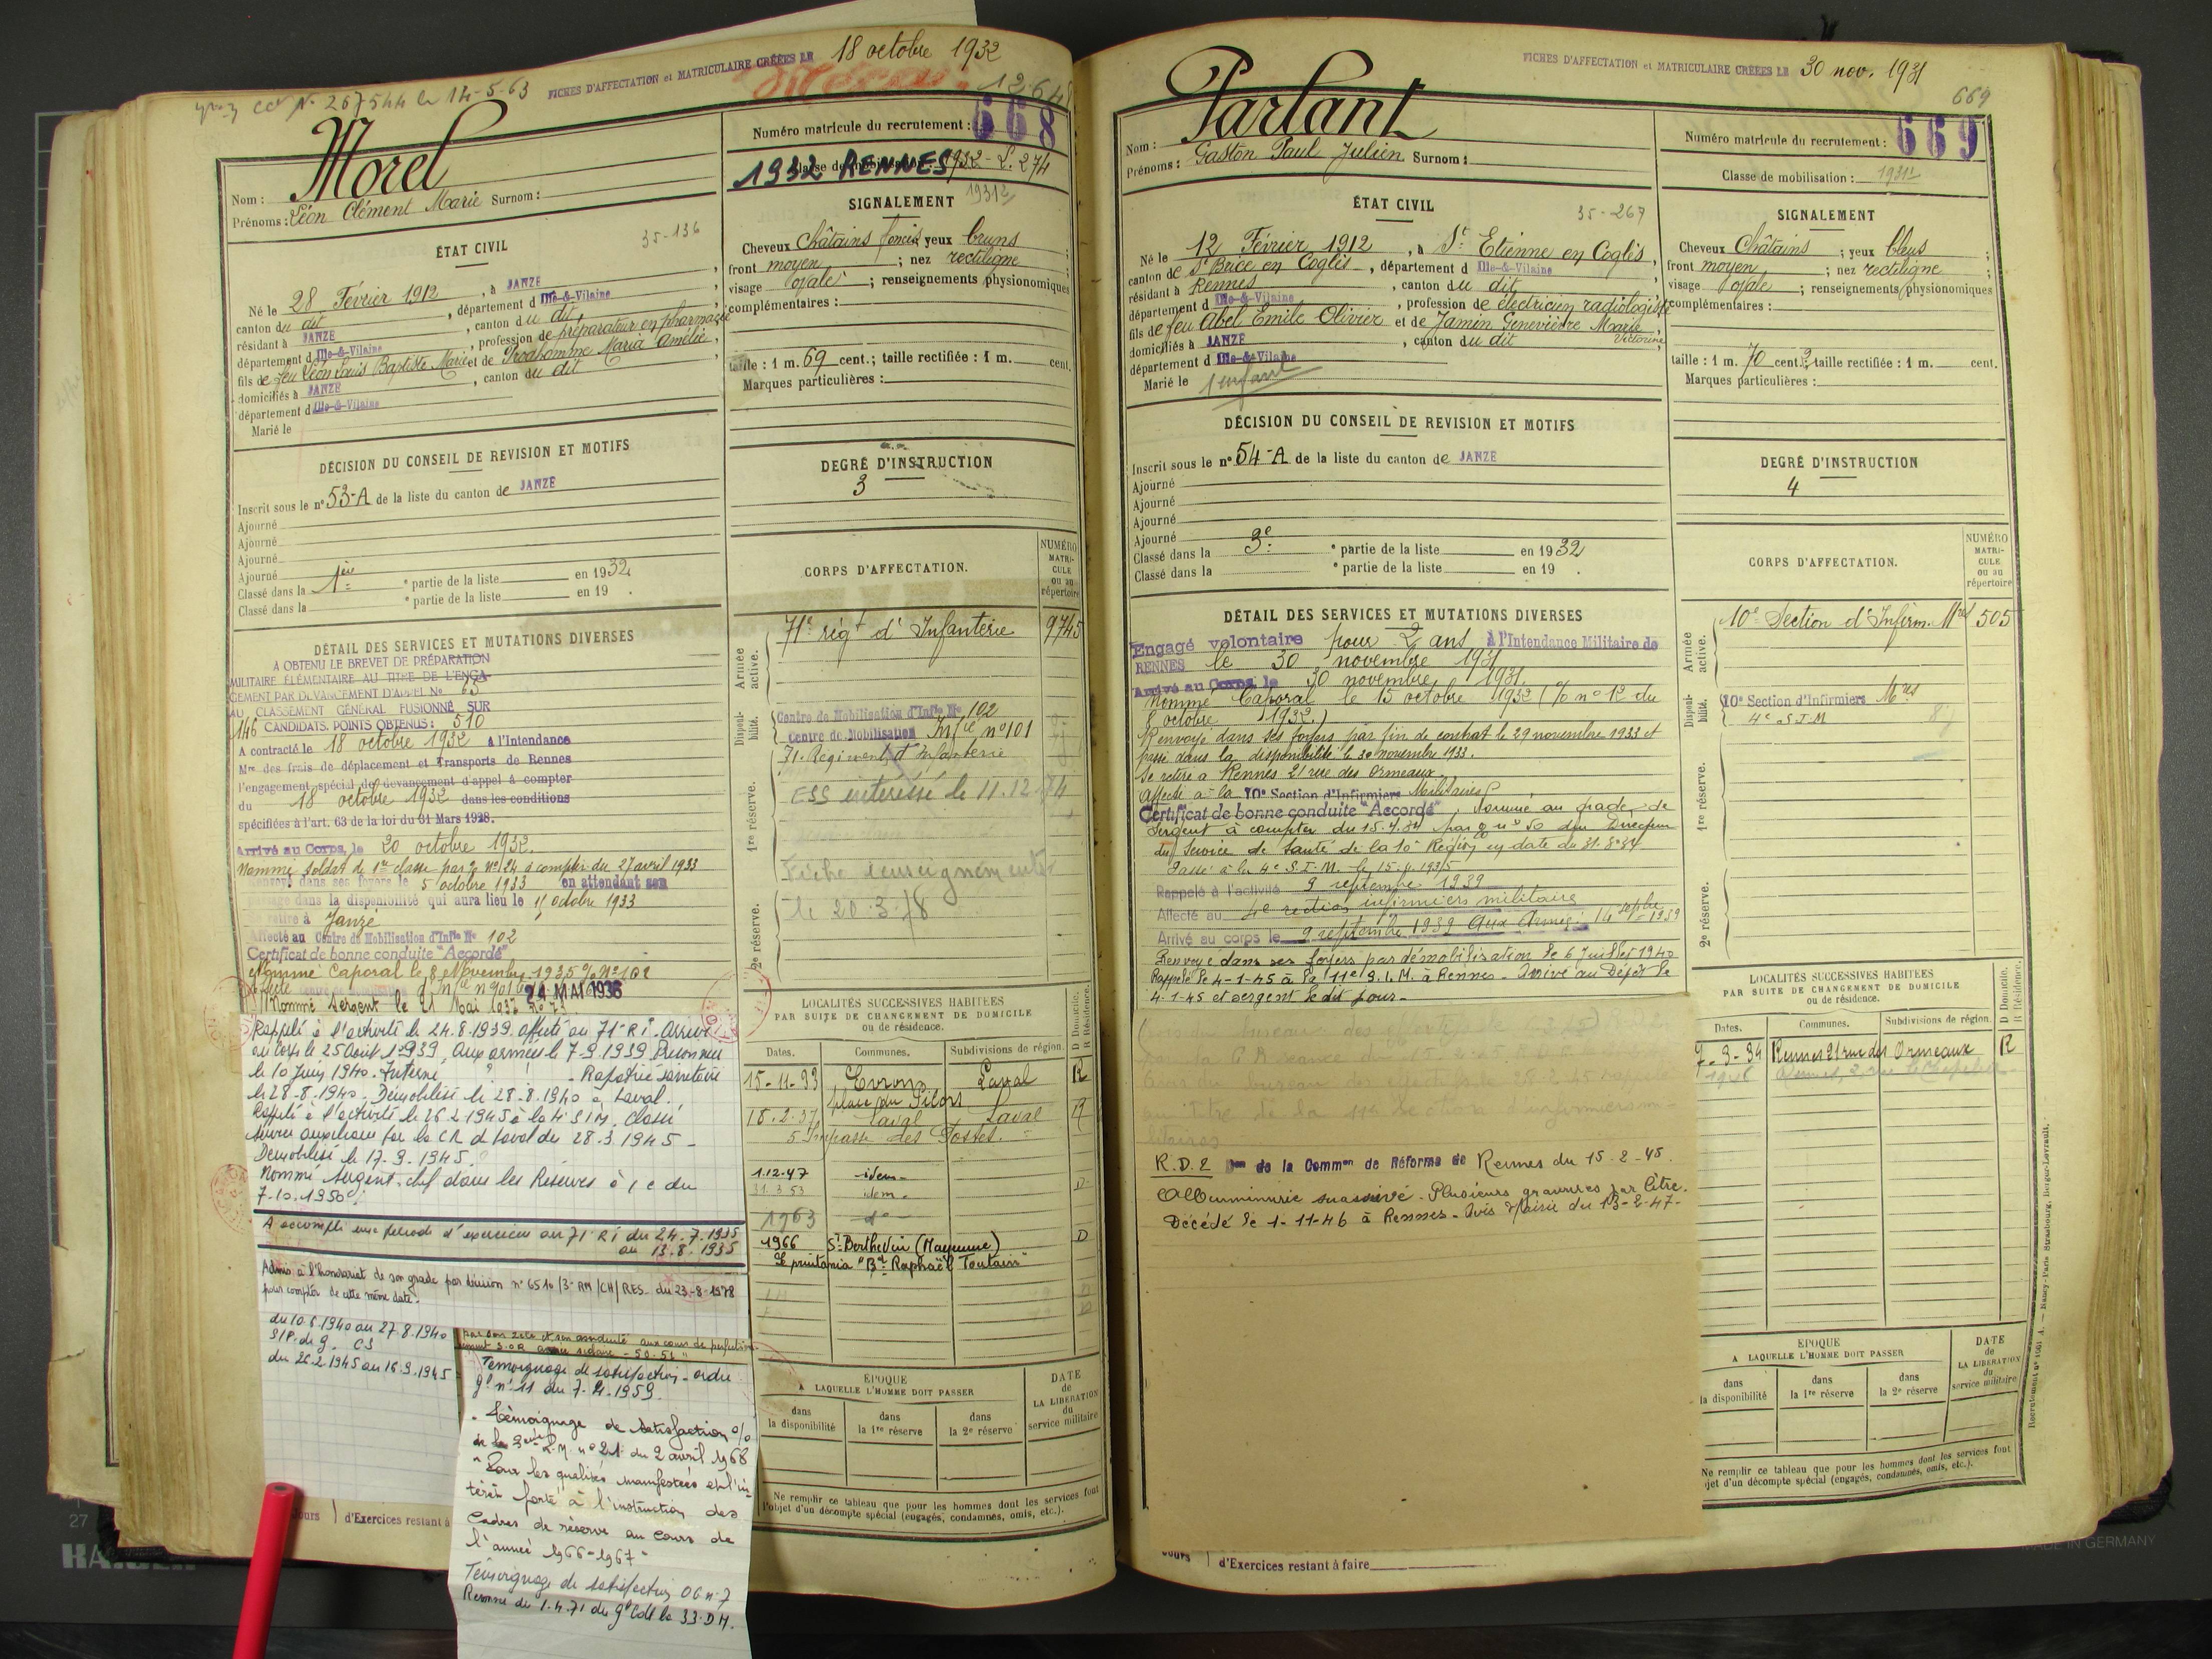 FICHES D'AFFECTATION et MATRICULAIRE CRÉÉES LE 18 octobre 1932
N° 267544 le 14-5-63
Morel
Nom :
Prénoms : Léon Clément Marie Surnom :
Numéro matricule du recrutement : 668
Classe de mobilisation : 1932 - L. 274
1932 RENNES
ÉTAT CIVIL
35-136
Né le 28 Février 1912, à JANZÉ
canton du dit, département d Ille-&-Vilaine
résidant à JANZÉ, canton du dit,
département d Ille-&-Vilaine, profession de préparateur en pharmacie
fils de feu Léon Louis Baptiste Marie et de Prodhomme Maria Amélie,
domiciliés à JANZÉ, canton du dit
département d Ille-&-Vilaine
Marié le
SIGNALEMENT
Cheveux Châtains foncés yeux bruns ;
front moyen ; nez rectiligne ;
visage ovale ; renseignements physionomiques
complémentaires :
taille : 1 m. 69 cent.; taille rectifiée : 1 m. cent.
Marques particulières :
DÉCISION DU CONSEIL DE REVISION ET MOTIFS
Inscrit sous le n° 53-A de la liste du canton de JANZÉ
Ajourné
Ajourné
Ajourné
Ajourné
Classé dans la 1ère e partie de la liste en 1932
Classé dans la e partie de la liste en 19 .
DEGRÉ D'INSTRUCTION
3
DÉTAIL DES SERVICES ET MUTATIONS DIVERSES
A OBTENU LE BREVET DE PRÉPARATION
MILITAIRE ÉLÉMENTAIRE AU TITRE DE L'ENGA-
GEMENT PAR DEVANCEMENT D'APPEL N° 63
AU CLASSEMENT GÉNÉRAL FUSIONNÉ SUR
146 CANDIDATS. POINTS OBTENUS : 510
A contracté le 18 octobre 1932 à l'Intendance
Mre des frais de déplacement et Transports de Rennes
l'engagement spécial de devancement d'appel à compter
du 18 octobre 1932 dans les conditions
spécifiées à l'art. 63 de la loi du 31 Mars 1928.
Arrivé au Corps, le 20 octobre 1932.
Nommé soldat de 1re classe par % N° 124 à compter du 27 avril 1933
Renvoyé dans ses foyers le 5 octobre 1933 en attendant son
passage dans la disponibilité qui aura lieu le octobre 1933
Se retire à Janzé
Affecté au Centre de Mobilisation d'Infie N° 102
Certificat de bonne conduite "Accordé"
Nommé Caporal le 8 Novembre 1935 % N° 102
24 MAI 1936
Nommé Sergent le 21 Mai 1937
Rappelé à l'activité le 24.8.1939 affecté au 71e R.I. Arrivé
au corps le 25 Août 1939, Aux armées le 7.9.1939 Prisonnier
le 10 Juin 1940. Interné " " - Rapatrié sanitaire
le 28-8-1940. Démobilisé le 28.8.1940 à Laval.
Rappelé à l'activité le 26.2.1945 à la 4e SIM. Classé
service auxiliaire par la CR de Laval du 28.3.1945 -
Démobilisé le 17-9-1945.
Nommé Sergent-chef dans les Réserves à c du
7.10.1950
A accompli une période d'exercices au 71e RI du 24.7.1935
au 13.8.1935
Admis à l'honorariat de son grade par décision n° 6510/3e RM/CH/RES du 23-8-1978
pour compter de cette même date.
du 10.6.1940 au 27.8.1940
S/P. de g. CS
du 26.2.1945 au 16.9.1945
par son zèle et son assiduité aux cours de perfection-
nement S.O.R année scolaire - 50-51 "
Témoignage de satisfaction - ordre
gl n° 11 du 7-4-1959.
" Témoignage de satisfaction o/
de la 3ème R.M. n° 21 du 2 avril 1968
" Pour les qualités manifestées et l'in-
térêt porté à l'instruction des
Cadres de réserve au cours de
l'année 1966-1967 "
Témoignage de satisfaction OG n° 7
Rennes du 1.4.71 du gl Cdt la 33 DM.
Jours d'Exercices restant à
CORPS D'AFFECTATION.
NUMÉRO MATRI-CULE ou au répertoire
Armée active.
71e régt d'Infanterie 9745
Disponi-bilité.
Centre de Mobilisation d'Infie N° 102
Centre de Mobilisation Infie n° 101
71e Régiment d'Infanterie
1re réserve.
ESS intéressé le 11.12.74
Fiche renseignements
2e réserve.
le 20.3.78
LOCALITÉS SUCCESSIVES HABITÉES
PAR SUITE DE CHANGEMENT DE DOMICILE
ou de résidence.
D Domicile. R Résidence.
Dates. Communes. Subdivisions de région.
15-11-33 Evron Laval R
place du Pilori
18.2.37 Laval Laval R
5 Impasse des Fossés.
1.12.47 idem-
31.3.53 idem. D
1963 do
1966 St Berthevin (Mayenne) D
Le printania "Bt Raphaël Toutain"
ÉPOQUE
A LAQUELLE L'HOMME DOIT PASSER
DATE de LA LIBÉRATION du service militaire
dans la disponibilité
dans la 1re réserve
dans la 2e réserve
Ne remplir ce tableau que pour les hommes dont les services font
l'objet d'un décompte spécial (engagés, condamnés, omis, etc.).
FICHES D'AFFECTATION et MATRICULAIRE CRÉÉES LE 30 nov. 1931
669
Parlant
Nom :
Prénoms : Gaston Paul Julien Surnom :
Numéro matricule du recrutement : 669
Classe de mobilisation : 1931/2
ÉTAT CIVIL
35-267
Né le 12 Février 1912, à St Etienne en Coglès,
canton de St Brice en Coglès, département d Ille-&-Vilaine
résidant à Rennes, canton du dit
département d Ille-&-Vilaine, profession de électricien radiologiste
fils de feu Abel Emile Olivier et de Jamin Geneviève Marie Victorine,
domiciliés à JANZÉ, canton du dit
département d Ille-&-Vilaine
Marié le
1 enfant
SIGNALEMENT
Cheveux Châtains ; yeux bleus ;
front moyen ; nez rectiligne ;
visage ovale ; renseignements physionomiques
complémentaires :
taille : 1 m. 70 cent.; taille rectifiée : 1 m. cent.
Marques particulières :
DÉCISION DU CONSEIL DE REVISION ET MOTIFS
Inscrit sous le n° 54-A de la liste du canton de JANZÉ
Ajourné
Ajourné
Ajourné
Ajourné
Classé dans la 3e e partie de la liste en 1932
Classé dans la e partie de la liste en 19 .
DEGRÉ D'INSTRUCTION
4
DÉTAIL DES SERVICES ET MUTATIONS DIVERSES
Engagé volontaire pour 2 ans à l'Intendance Militaire de
RENNES le 30 novembre 1931
Arrivé au Corps le 30 novembre 1931.
Nommé Caporal le 15 octobre 1932 (% n° 12 du
8 octobre 1932.)
Renvoyé dans ses foyers par fin de contrat le 29 novembre 1933 et
passé dans la disponibilité le 30 novembre 1933.
Se retire à Rennes 21 rue des Ormeaux.
Affecté à la 10e Section d'Infirmiers Militaires
Certificat de bonne conduite "Accordé". Nommé au grade de
Sergent à compter du 15.4.34 par % n° 50 du Directeur
du Service de Santé de la 10e Région en date du 31.3.34
Passé à la 4e S.I.M. le 15.4.1935
Rappelé à l'activité 9 septembre 1939
Affecté au 4e section infirmiers militaire
Arrivé au corps le 9 septembre 1939 aux Armées 14 septbre 1939
Renvoyé dans ses foyers par démobilisation le 6 Juillet 1940
Rappelé le 4-1-45 à la 11e S.I.M. à Rennes - Arrivé au Dépôt le
4-1-45 et sergent le dit jour-
R.D.2 Don de la Common de Réforme de Rennes du 15-2-45.
Albuminurie massive. Plusieurs grammes par litre.
Décédé le 1-11-46 à Rennes - Avis Mairie du 13-2-47-
Jours d'Exercices restant à faire
CORPS D'AFFECTATION.
NUMÉRO MATRI-CULE ou au répertoire
Armée active.
10e Section d'Infirm. Mres 505
Disponi-bilité.
10e Section d'Infirmiers Mres
4e S.I.M
1re réserve.
2e réserve.
LOCALITÉS SUCCESSIVES HABITÉES
PAR SUITE DE CHANGEMENT DE DOMICILE
ou de résidence.
D Domicile. R Résidence.
Dates. Communes. Subdivisions de région.
7-3-34 Rennes 21 rue des Ormeaux R
1946 Rennes, 2, rue Le Chapelier
ÉPOQUE
A LAQUELLE L'HOMME DOIT PASSER
DATE de LA LIBÉRATION du service militaire
dans la disponibilité
dans la 1re réserve
dans la 2e réserve
Ne remplir ce tableau que pour les hommes dont les services font
objet d'un décompte spécial (engagés, condamnés, omis, etc.).
Recrutement n° 1001 A. — Nancy-Paris-Strasbourg, Berger-Levrault.
MADE IN GERMANY